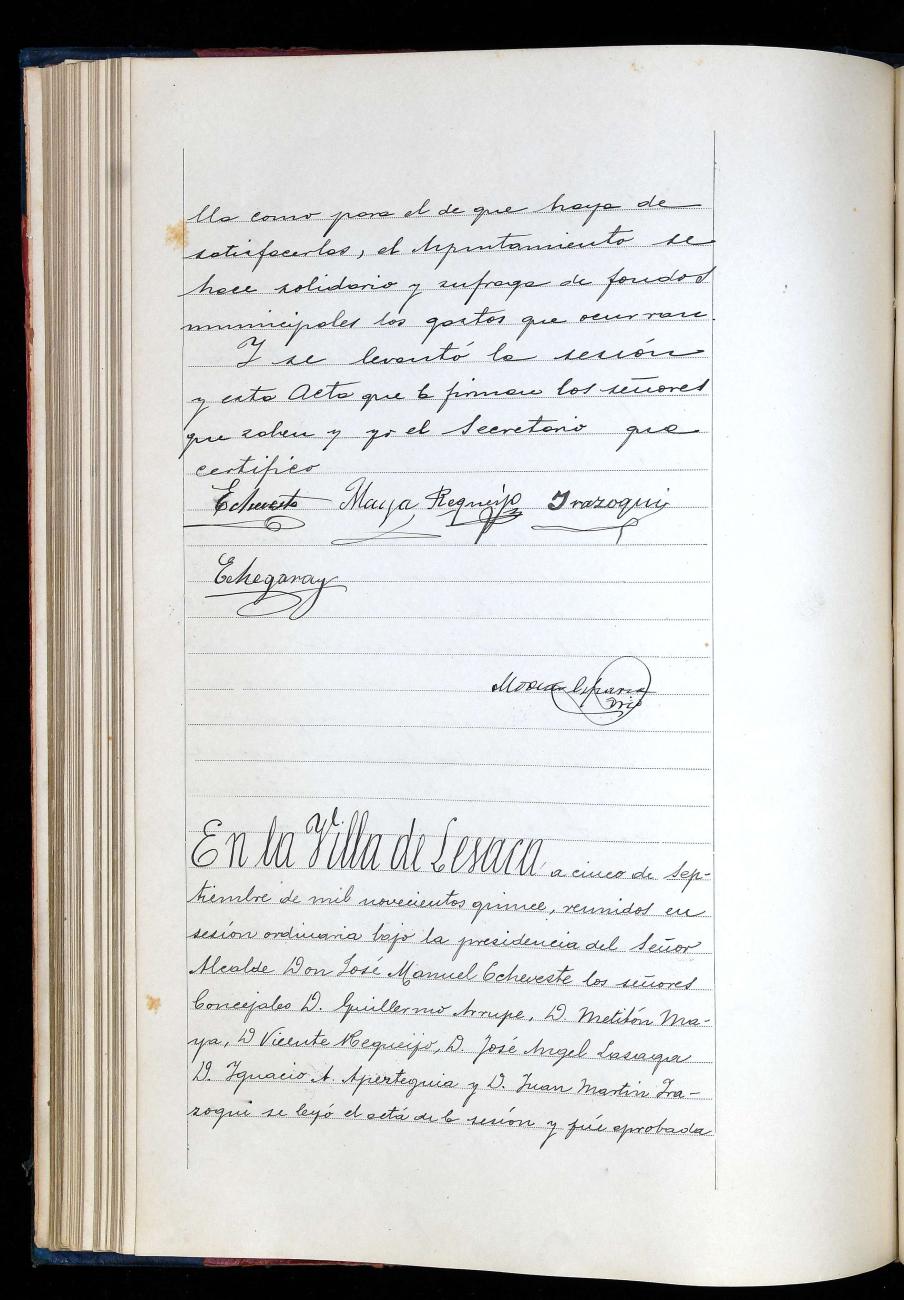 lla como para el de que haya de
satisfacerlas, el Ayuntamiento se
hace solidario y sufraga de fondos
municipales los gastos que ocurran.
Y se levantó la sesión
y esta Acta que la firman los señores
que saben y yo el Secretario que
certifico
Echeveste Maya Requeijo Irazoqui
Echegaray
En la Villa de Lesaca a cinco de Sep-
tiembre de mil novecientos quince, reunidos en
sesión ordinaria bajo la presidencia del Señor
Alcalde Don José Manuel Echeveste los señores
Concejales D. Guillermo Arrupe, D. Melitón Ma-
ya, D Vicente Requeijo, D. José Angel Lasaga
D. Ignacio A. Apezteguia y D. Juan Martin Ira-
zoqui se leyó el actá de la sesión y fué aprobada